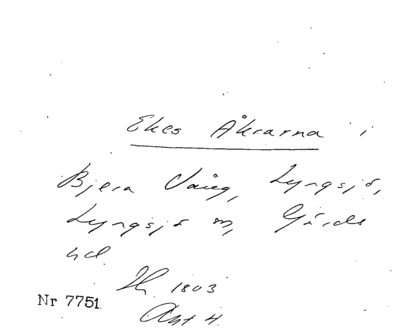 Ekes Åkrarna i
Bjera Vång, Lyngsjö,
Lyngsjö sn, Gärds
hd.
1803
Nr 7751
Akt 4